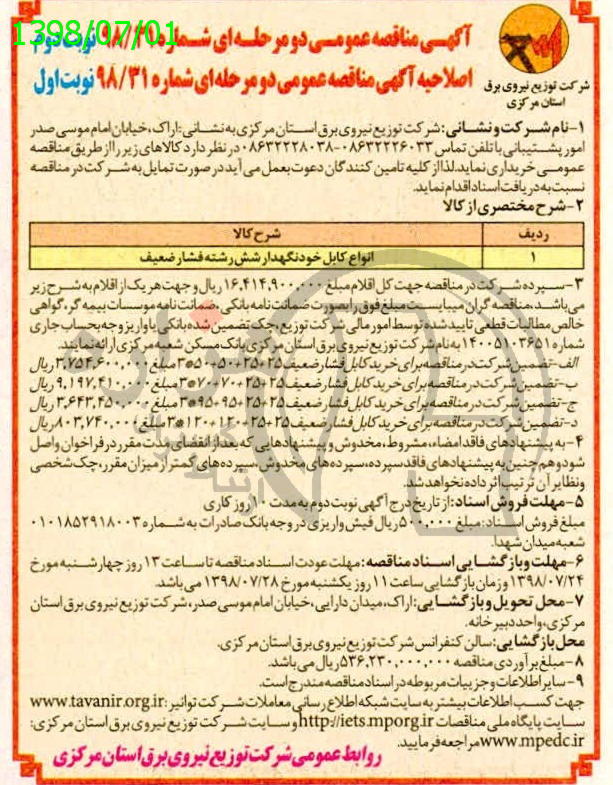 1398/07/01
آگهی مناقصه عمومی دو مرحله ای شماره ۹۸/۳۱ نوبت دوم
اصلاحیه آگهی مناقصه عمومی دو مرحله ای شماره ۹۸/۳۱ نوبت اول
شرکت توزیع نیروی برق
استان مرکزی
۱-نام شرکت و نشانی: شرکت توزیع نیروی برق استان مرکزی به نشانی: اراک، خیابان امام موسی صدر
امور پشتیبانی با تلفن تماس ۰۸۶۳۲۲۲۶۰۳۳-۰۸۶۳۲۲۲۸۰۳۸ در نظر دارد کالاهای زیر را از طریق مناقصه
عمومی خریداری نماید. لذا از کلیه تامین کنندگان دعوت بعمل می آید در صورت تمایل به شرکت در مناقصه
نسبت به دریافت اسناد اقدام نماید.
۲-شرح مختصری از کالا
ردیف شرح کالا
۱ انواع کابل خودنگهدار شش رشته فشار ضعیف
۳-سپرده شرکت در مناقصه جهت کل اقلام مبلغ ۱۶,۴۱۴,۹۰۰,۰۰۰ ریال و جهت هر یک از اقلام به شرح زیر
می باشد، مناقصه گران میبایست مبلغ فوق را بصورت ضمانت نامه بانکی، ضمانت نامه موسسات بیمه گر، گواهی
خالص مطالبات قطعی تایید شده توسط امور مالی شرکت توزیع، چک تضمین شده بانکی یا واریز وجه بحساب جاری
شماره ۱۴۰۰۵۱۰۳۶۵۱ به نام شرکت توزیع نیروی برق استان مرکزی بانک مسکن شعبه مرکزی ارائه نمایند.
الف-تضمین شرکت در مناقصه برای خرید کابل فشار ضعیف ۲۵+۲۵+۵۰+۵۰*۳ مبلغ ۳,۷۵۴,۶۰۰,۰۰۰ ریال
ب-تضمین شرکت در مناقصه برای خرید کابل فشار ضعیف ۲۵+۲۵+۷۰+۷۰*۳ مبلغ ۹,۱۹۷,۴۱۰,۰۰۰ ریال
ج-تضمین شرکت در مناقصه برای خرید کابل فشار ضعیف ۲۵+۲۵+۹۵+۹۵*۳ مبلغ ۳,۶۴۳,۴۵۰,۰۰۰ ریال
د-تضمین شرکت در مناقصه برای خرید کابل فشار ضعیف ۲۵+۲۵+۱۲۰+۱۲۰*۳ مبلغ ۸۰۳,۷۴۰,۰۰۰ ریال
۴-به پیشنهادهای فاقد امضاء، مشروط، مخدوش و پیشنهادهایی که بعد از انقضای مدت مقرر در فراخوان واصل
شود و هم چنین به پیشنهادهای فاقد سپرده، سپرده های مخدوش، سپرده های کمتر از میزان مقرر، چک شخصی
و نظایر آن ترتیب اثر داده نخواهد شد.
۵-مهلت فروش اسناد: از تاریخ درج آگهی نوبت دوم به مدت ۱۰ روز کاری
مبلغ فروش اسناد: مبلغ ۵۰۰,۰۰۰ ریال فیش واریزی در وجه بانک صادرات به شماره ۰۱۰۱۸۵۲۹۱۸۰۰۳
شعبه میدان شهدا.
۶-مهلت و بازگشایی اسناد مناقصه: مهلت عودت اسناد مناقصه تا ساعت ۱۳ روز چهارشنبه مورخ
۱۳۹۸/۰۷/۲۴ و زمان بازگشایی ساعت ۱۱ روز یکشنبه مورخ ۱۳۹۸/۰۷/۲۸ می باشد.
۷-محل تحویل و بازگشایی: اراک، میدان دارایی، خیابان امام موسی صدر، شرکت توزیع نیروی برق استان
مرکزی، واحد دبیرخانه.
محل بازگشایی: سالن کنفرانس شرکت توزیع نیروی برق استان مرکزی.
۸-مبلغ برآوردی مناقصه ۵۳۶,۲۳۰,۰۰۰,۰۰۰ ریال می باشد.
۹-سایر اطلاعات و جزییات مربوطه در اسناد مناقصه مندرج است.
جهت کسب اطلاعات بیشتر به سایت شبکه اطلاع رسانی معاملات شرکت توانیر: www.tavanir.org.ir
سایت پایگاه ملی مناقصات http://iets.mporg.ir و سایت شرکت توزیع نیروی برق استان مرکزی:
www.mpedc.ir مراجعه فرمایید.
روابط عمومی شرکت توزیع نیروی برق استان مرکزی